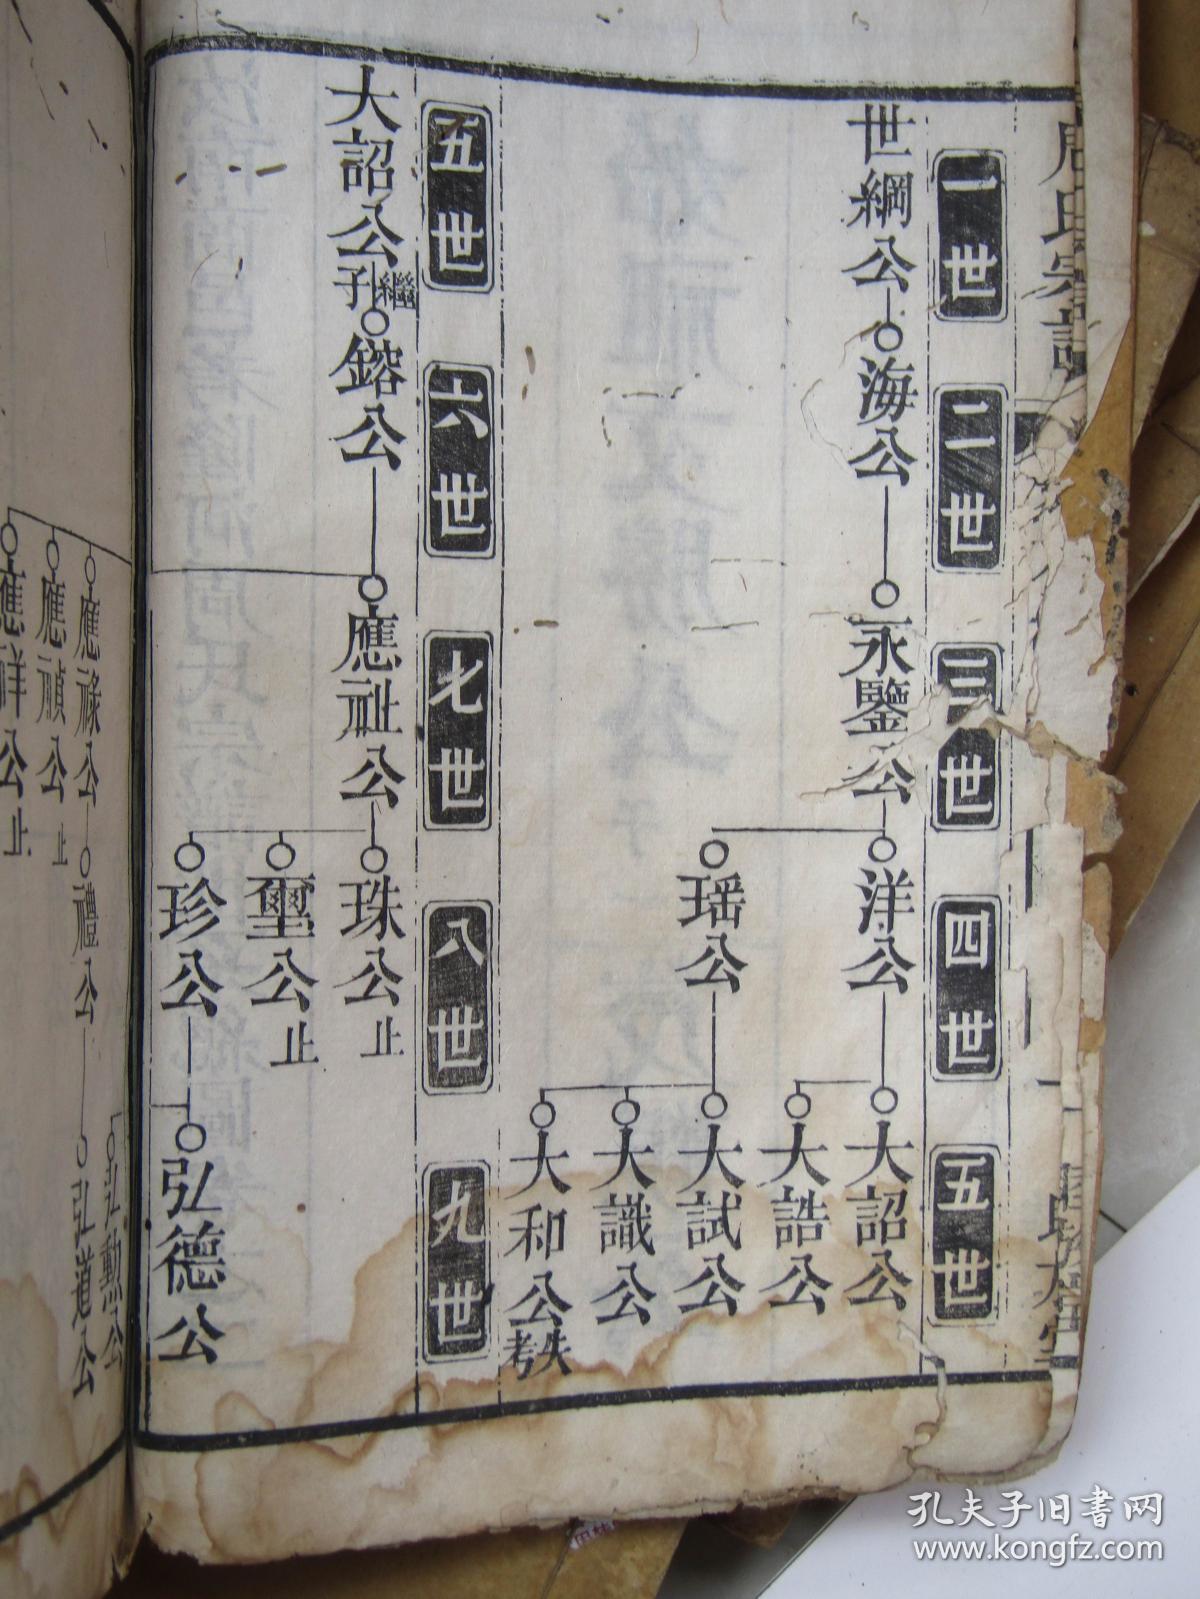 周氏宗譜
一世
二世
三世
四世
五世
世綱公
海公
永鑒公
洋公
大詔公
大誥公
瑶公
大試公
大識公
大和公
失考
五世
六世
七世
八世
九世
大詔公
繼子
鎔公
應祉公
珠公
止
璽公
止
珍公
弘德公
應祿公
禮公
弘勲公
弘道公
應禎公
止
應祥公
止
孔夫子旧书网
www.kongfz.com